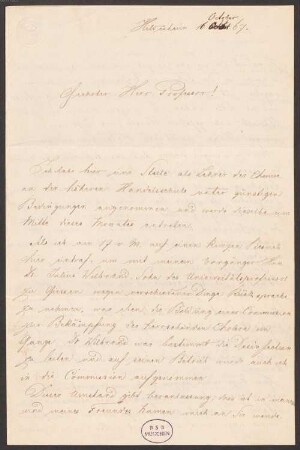 Hildesheim 1 October 67.
Geehrter Herr Professor!
Ich habe hier eine Stelle als Lehrer der Chemie
an der höheren Handelsschule unter günstigen
Bedingungen angenommen und werde dieselbe
Mitte dieses Monates antreten.
Als ich am 17 v. M. auf einen kurzen Besuch
hier eintraf um mit meinem Vorgänger Herrn
Dr. Wilbrand, Sohn des Universitätsprofessors
zu Giessen wegen verschiedener Dinge Rücksprache
zu nehmen, war eben die Bildung einer Commission
zur Bekämpfung der herrschenden Cholera im
Gange. Dr Wilbrand war bestimmt die Desinfection
zu leiten und auf seinen Betrieb wurde auch ich
in die Commission aufgenommen.
Dieser Umstand gibt Veranlassung, dass ich in meinem
und meines Freundes Namen mich an Sie wende
BSB
MÜNCHEN